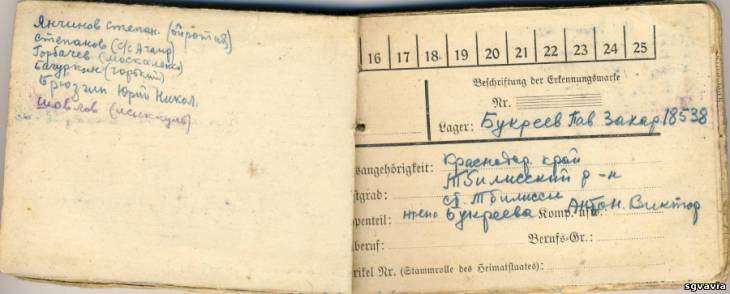 Янчинов Степан. (Сиротка)
Степанов (с/с Агаир
Горбачев (москаленки)
Батуркин (горький)
Брюзгин Юрий Никол.
Шовлов (исилькуль)
16 17 18 19 20 21 22 23 24 25
Beschriftung der Erkennungsmarke
Nr.
Lager: Букреев Пав Захар 18538
sangehörigkeit: Краснодар. край
Тбилисский р-н
stgrad: ст. Тбилисси
penteil: жена Букреева Komp. usw.: Антон. Виктор
beruf: Berufs-Gr.:
rikel Nr. (Stammrolle des Heimatstaates):
sgvavia